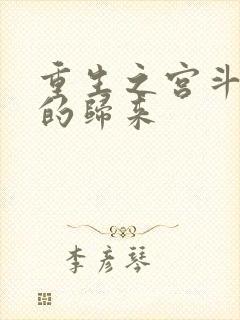 重生之宫斗
的歸来
李彦琴